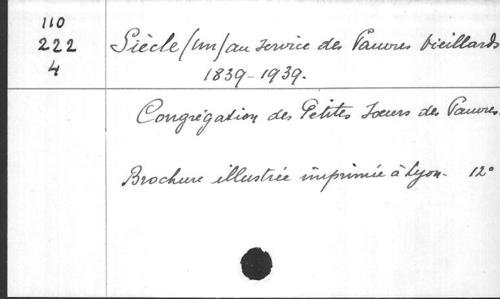 110
222
4
Siècle (un) au service des Pauvres vieillards
1839-1939.
Congrégation des Petites Soeurs des Pauvres.
Brochure illustrée imprimée à Lyon. 12°